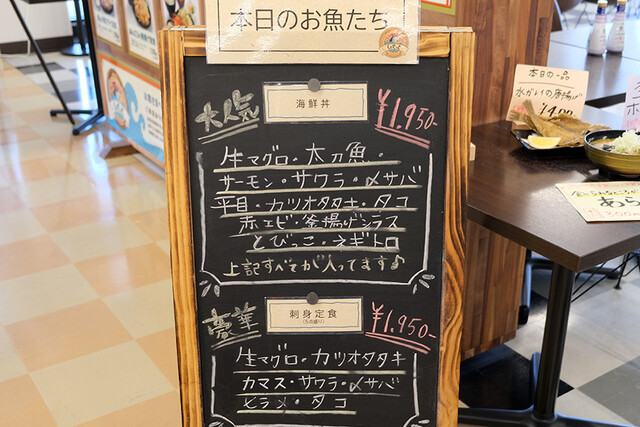 本日のお魚たち
大人気
海鮮丼
¥1.950-
生マグロ・太刀魚・
サーモン・サワラ・〆サバ
平目・カツオタタキ・タコ
赤エビ・釜揚げシラス
とびっこ・ネギトロ
上記すべてが入ってます♪
豪華
刺身定食
¥1.950-
生マグロ・カツオタタキ
カマス・サワラ・〆サバ
ヒラメ・タコ
本日の一品
水かれいの唐揚げ
あら